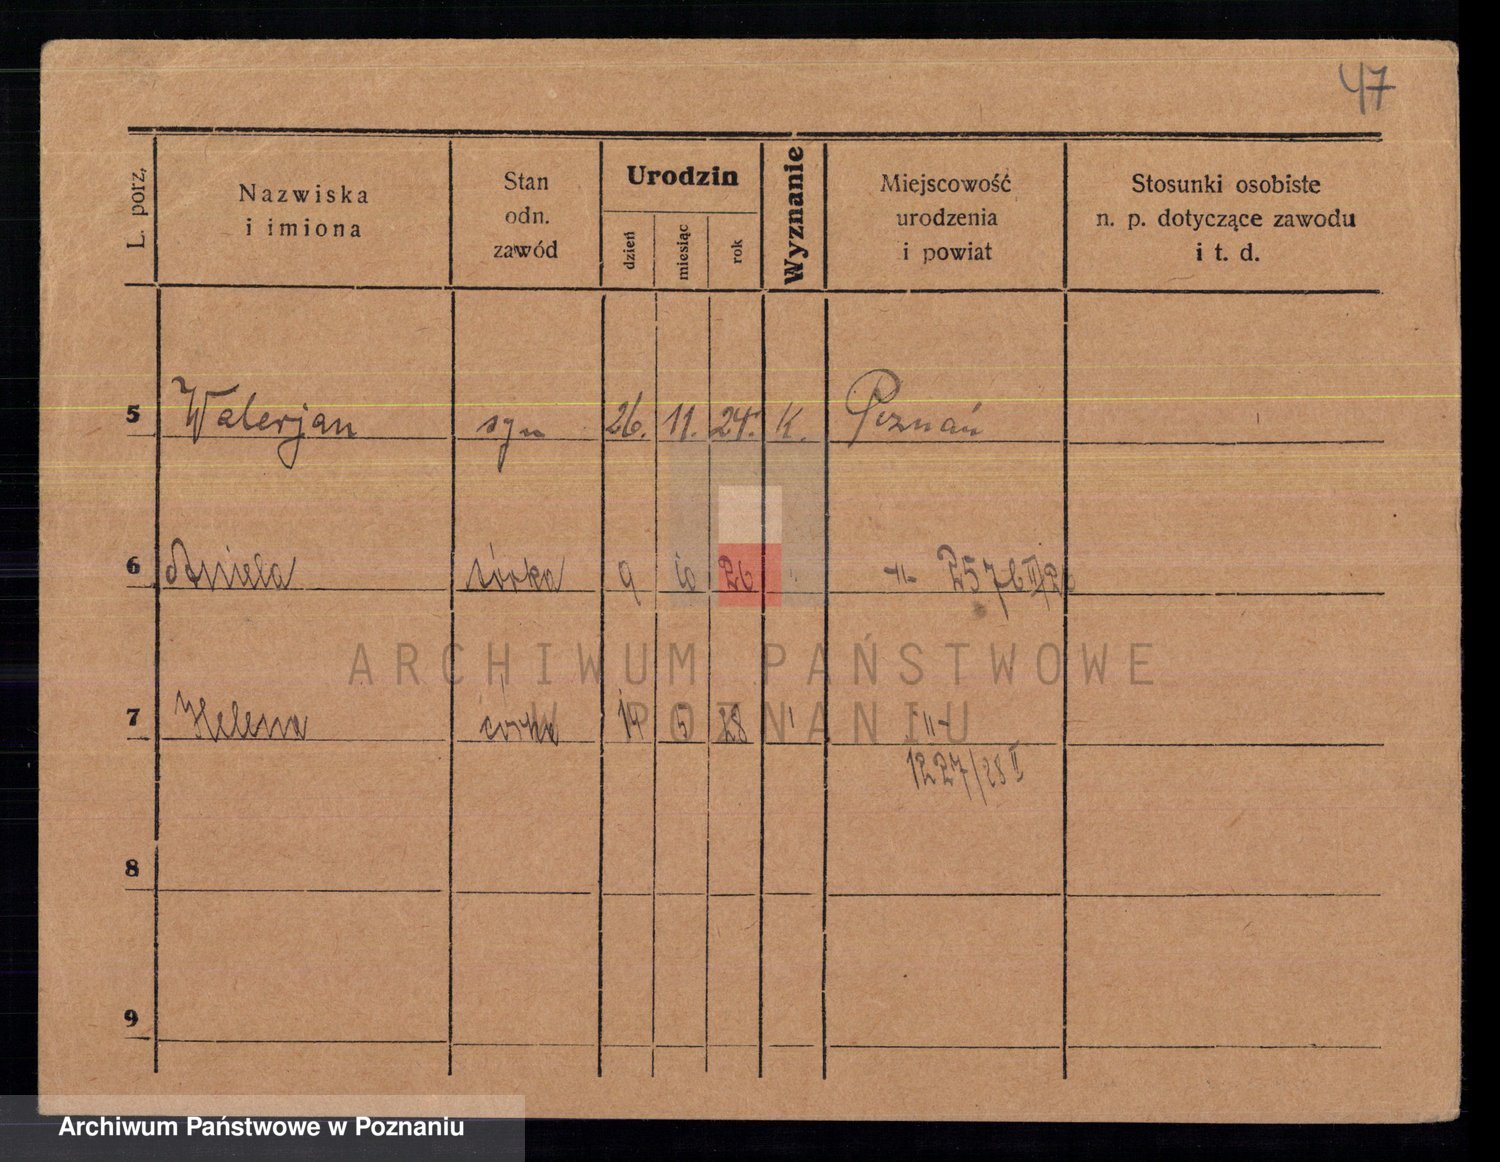 47
L. porz.
Nazwiska
i imiona
Stan
odn.
zawód
Urodzin
dzień
miesiąc
rok
Wyznanie
Miejscowość
urodzenia
i powiat
Stosunki osobiste
n. p. dotyczące zawodu
i t. d.
5 Walerjan syn 26. 11. 24. K. Poznań
6 Aniela córka 9 10 26 -"-
7 Helena córka 14 5 28 " -"-
1227/28 II
8
9
ARCHIWUM PAŃSTWOWE
W POZNANIU
Archiwum Państwowe w Poznaniu